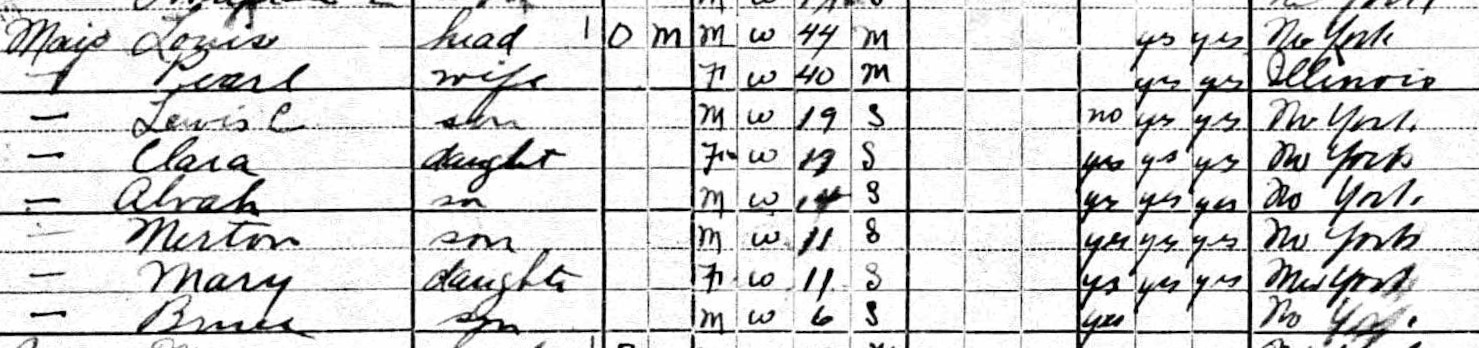 Louis head 1 O M M W 44 M yes yes No York
" Pearl wife F W 40 M yes yes Illinois
— Lewis C son M W 19 S no yes yes No York
— Clara daught F W S yes yes yes No York
— Alvah son M W 14 S yes yes yes No York
— Merton son M W 11 S yes yes yes No York
— Mary daughte F W 11 S yes yes yes New York
— Bruce son M W 6 S yes No York